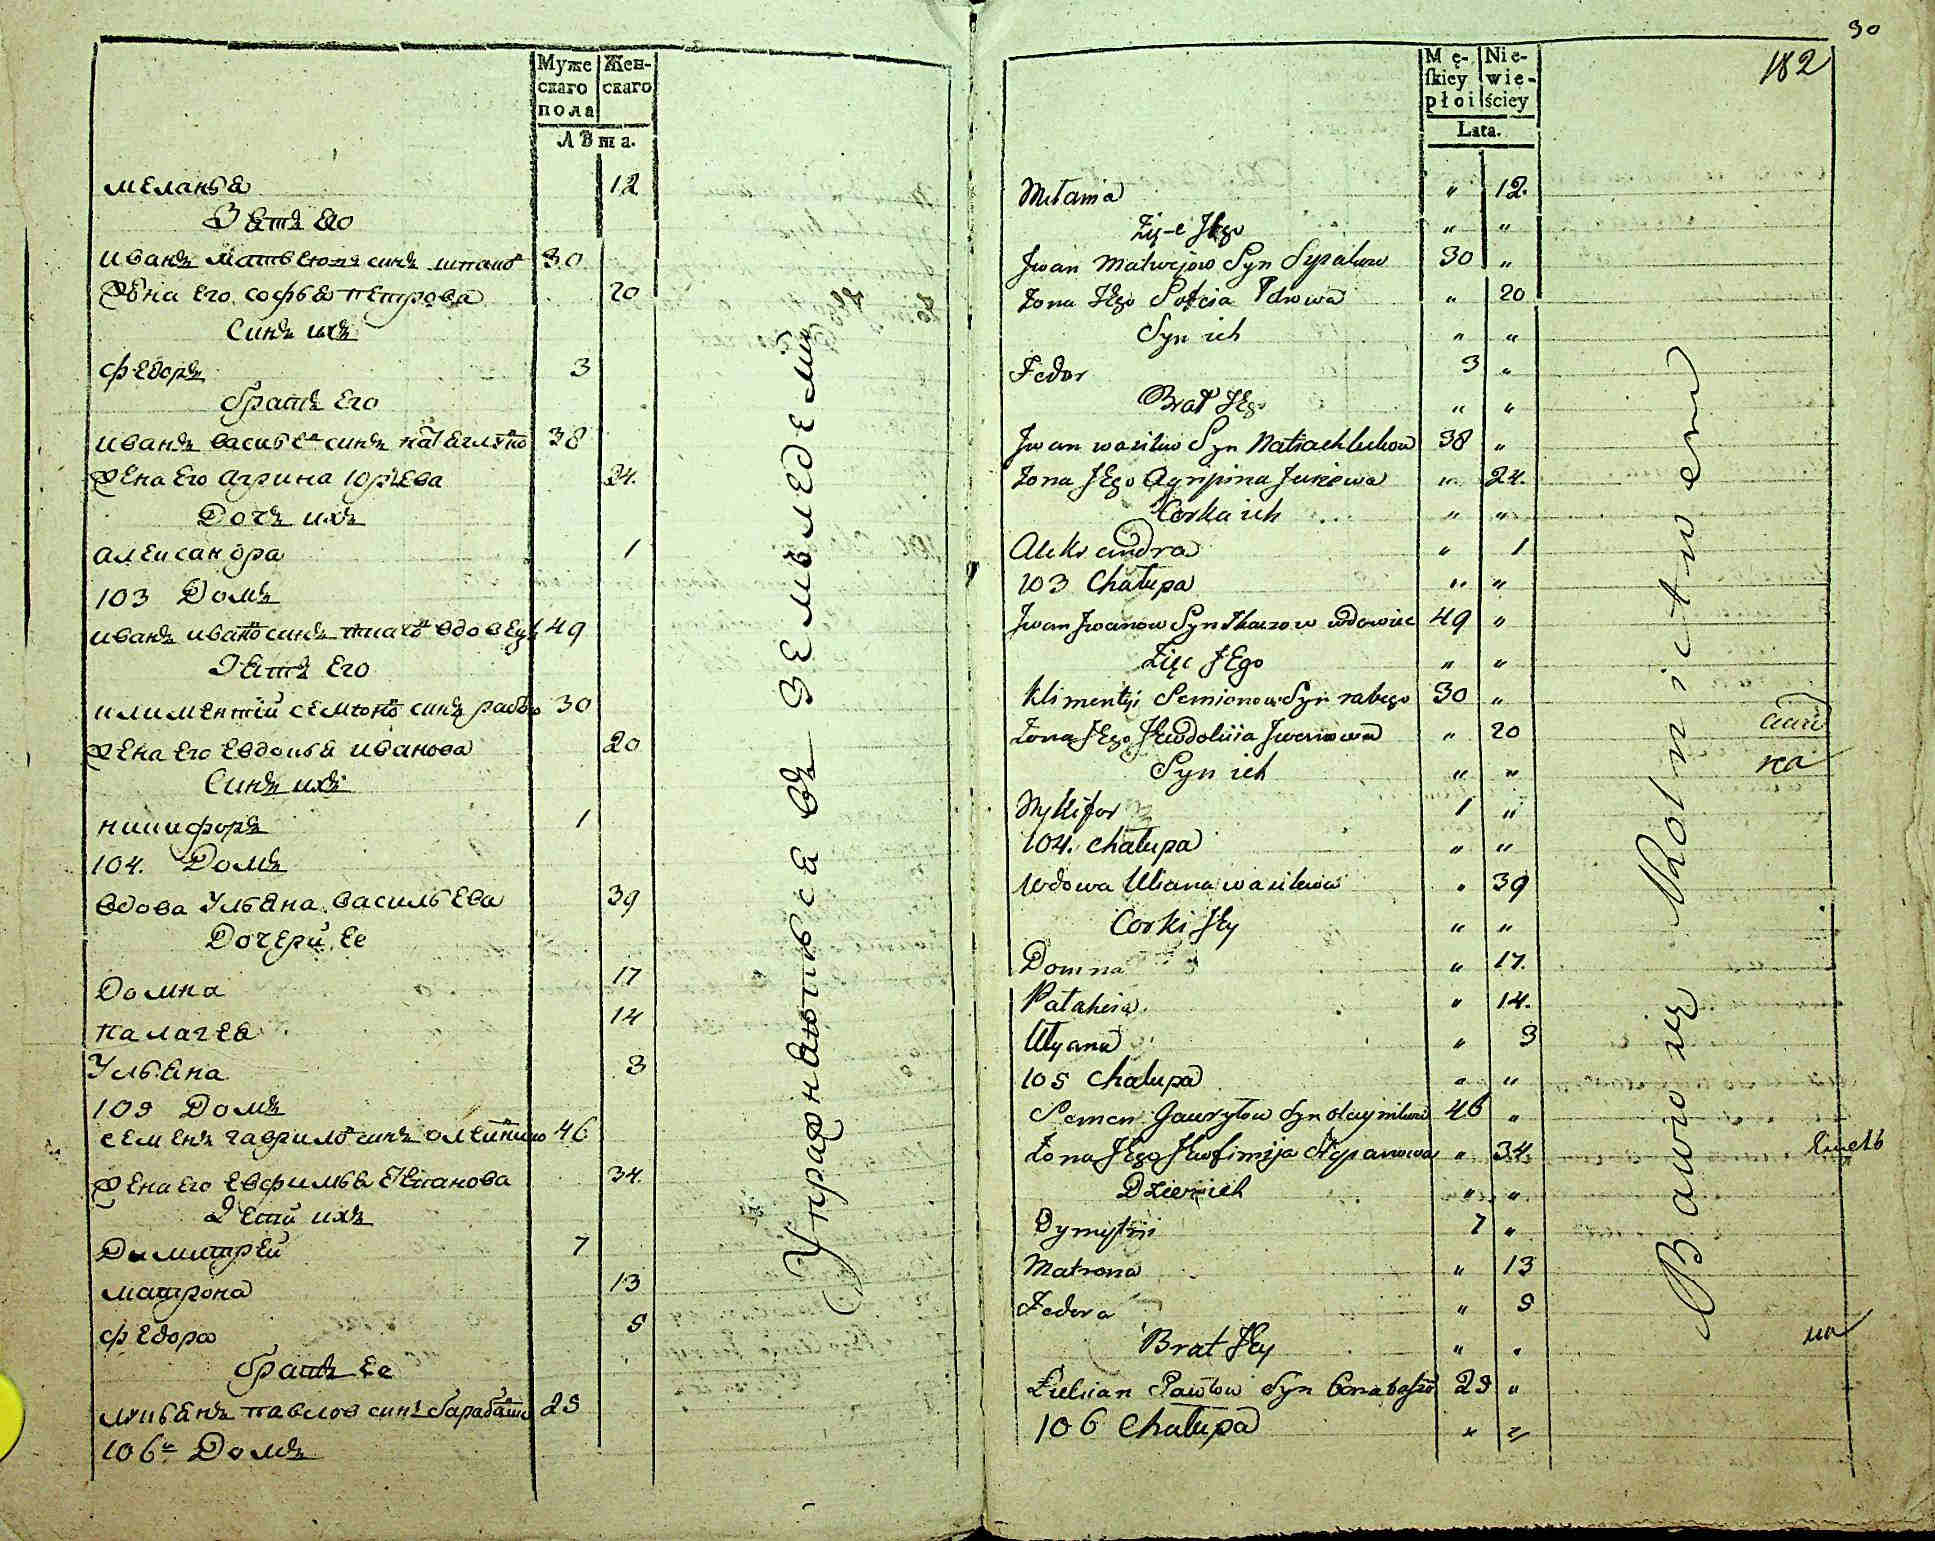 Муже Жен-
скаго скаго
пола
Лѣта.
меланья 12
Зять его
иванъ синъ 30
жена его софья петрова 20
Синъ ихъ
федоръ 3
братъ его
иванъ василье синъ 38
жена его агрина юрьева 24.
Дочь ихъ
александра 1
103 Домъ
иванъ ивано синъ ткачо вдовецъ 49
Зять его
климентий семено синъ рабо 30
жена его евдокья иванова 20
Синъ ихъ
никифоръ 1
104. Домъ
вдова ульяна васильева 39
Дочери ее
Домна 17
палагея 14
Ульяна 3
105 Домъ
семенъ гаврило синъ олейнико 46
жена его евфимья степанова 34.
Дети ихъ
Димитрей 7
матрона 13
федора 5
братъ ее
лукьянъ павлов синъ барабаш 25
106й Домъ
Упражняються въ земледели
30
182
Mę- Nie-
ſkiey wie-
płoi ściey
Lata.
Mełania " 12.
Zięc Jego " "
Jwan Matwejow Syn 30 "
Zona Jego Pedrowa " 20
Syn ich " "
Fedor 3 "
Brat Jego " "
Jwan wasilew Syn 38 "
Zona Jego Agripina Juriewa " 24.
Corka ich " "
Aleksandra " 1
103 Chałupa " "
Jwan Jwanow Syn Tkaczow wdowiec 49 "
Zięc Jego " "
Klimentyi Semionow Syn rabego 30 "
Zona Jego Jewdokiia Jwanowa " 20
Syn ich " "
Nykifor 1 "
104. Chałupa " "
Wdowa Uliana wasilewa " 39
Corki Jey " "
Domna " 17.
Pałaheia " 14.
Ulyana " 3
105 Chałupa " "
Semen Gawryłow Syn Olaynikow 46 "
Zona Jego Jewfimija Stepanowa " 34.
Dzieci ich " "
Dymytri 7 "
Matrona " 13
Fedora " 5
Brat Jey " "
Łukian Pawłow Syn 25 "
106 Chałupa " "
Bawią Rolnictwem